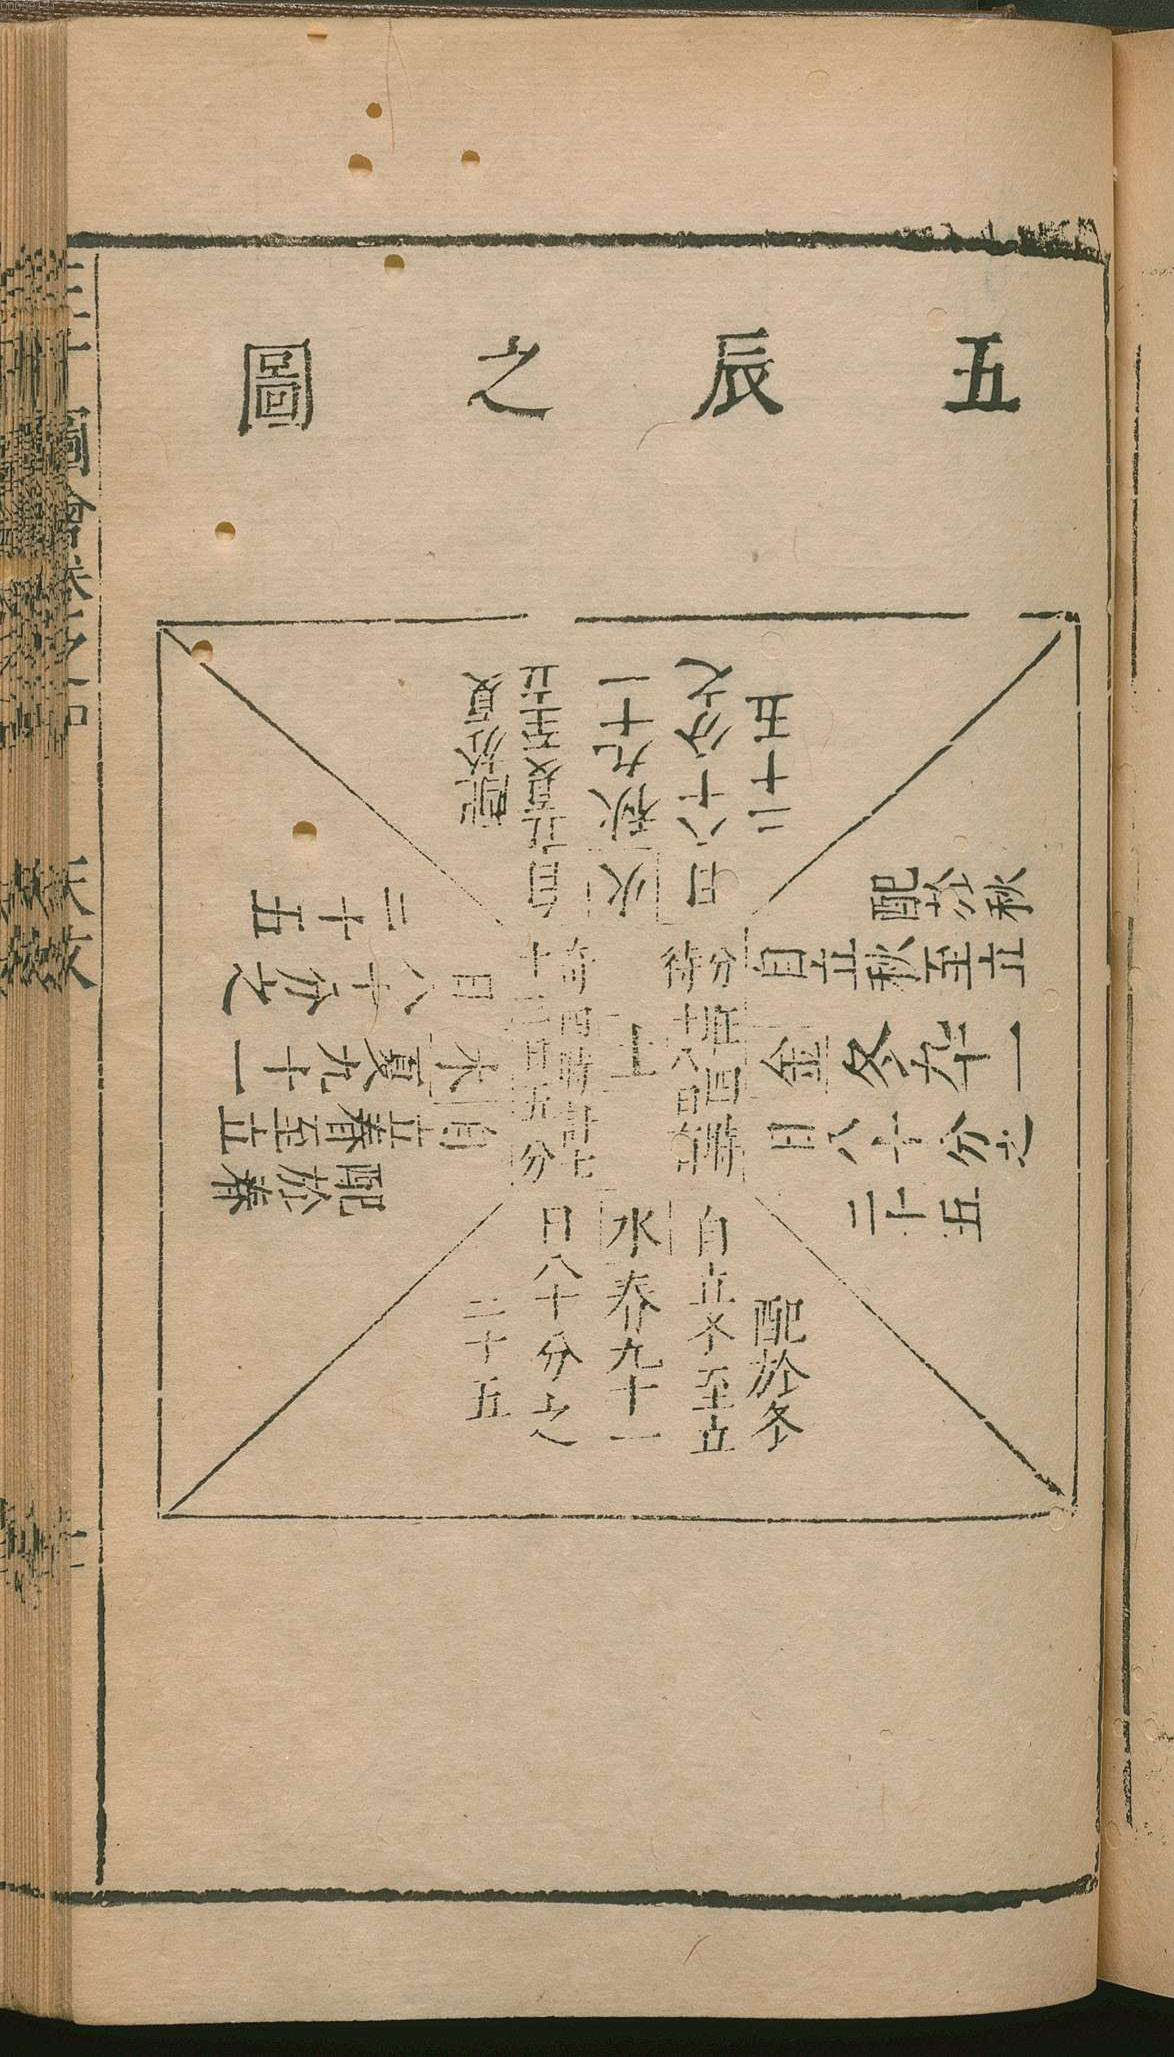 五辰之圖
配於夏
自立夏至立
火秋九十一
日八十分之
二十五
配於秋
自立秋至立
金冬九十一
日八十分之
二十五
配於冬
自立冬至立
水春九十一
日八十分之
二十五
配於春
自立春至立
木夏九十一
日八十分之
二十五
分旺四時
十八日有
土
奇四時計七
十三日五分
三才圖會
天文